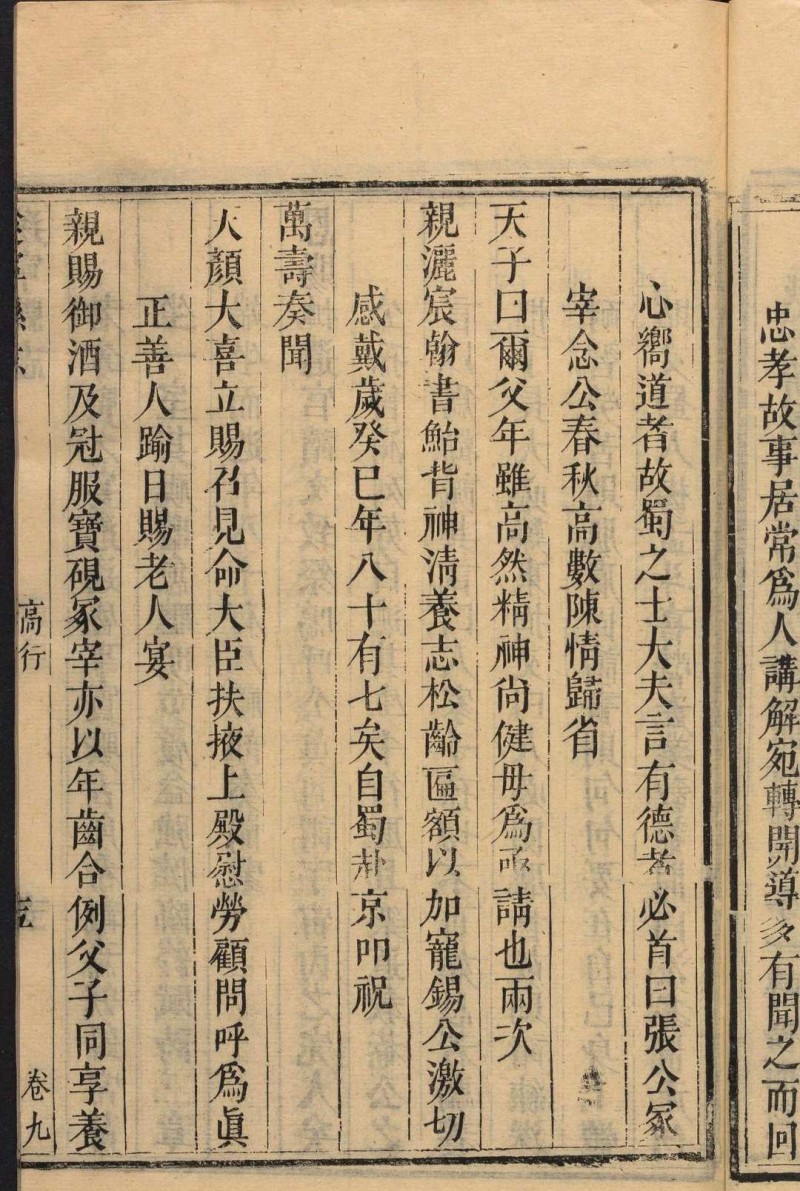 忠孝故事居常為人講解宛轉開導多有聞之而回
心嚮道者故蜀之士大夫言有德者必首曰張公冢
宰念公春秋高數陳情歸省
天子曰爾父年雖高然精神尙健毋為亟請也兩次
親灑宸翰書鮐背神淸養志松齡匾額以加寵錫公激切
感戴歲癸巳年八十有七矣自蜀赴京叩祝
萬壽奏聞
天顏大喜立賜召見命大臣扶掖上殿慰勞顧問呼為眞
正善人踰日賜老人宴
親賜御酒及冠服寶硯冢宰亦以年齒合例父子同享養
高行
卷九